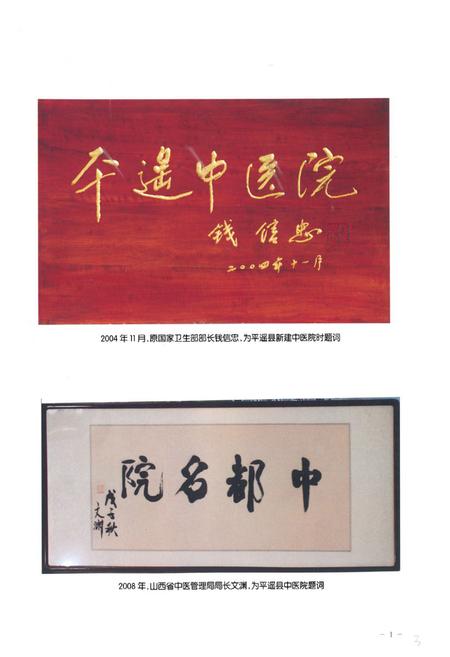 平遥中医院
钱信忠
二〇〇四年十一月
2004年11月,原国家卫生部部长钱信忠,为平遥县新建中医院时题词
中都名院
戊子秋
文渊
2008年,山西省中医管理局局长文渊,为平遥县中医院题词
- 1 -
3